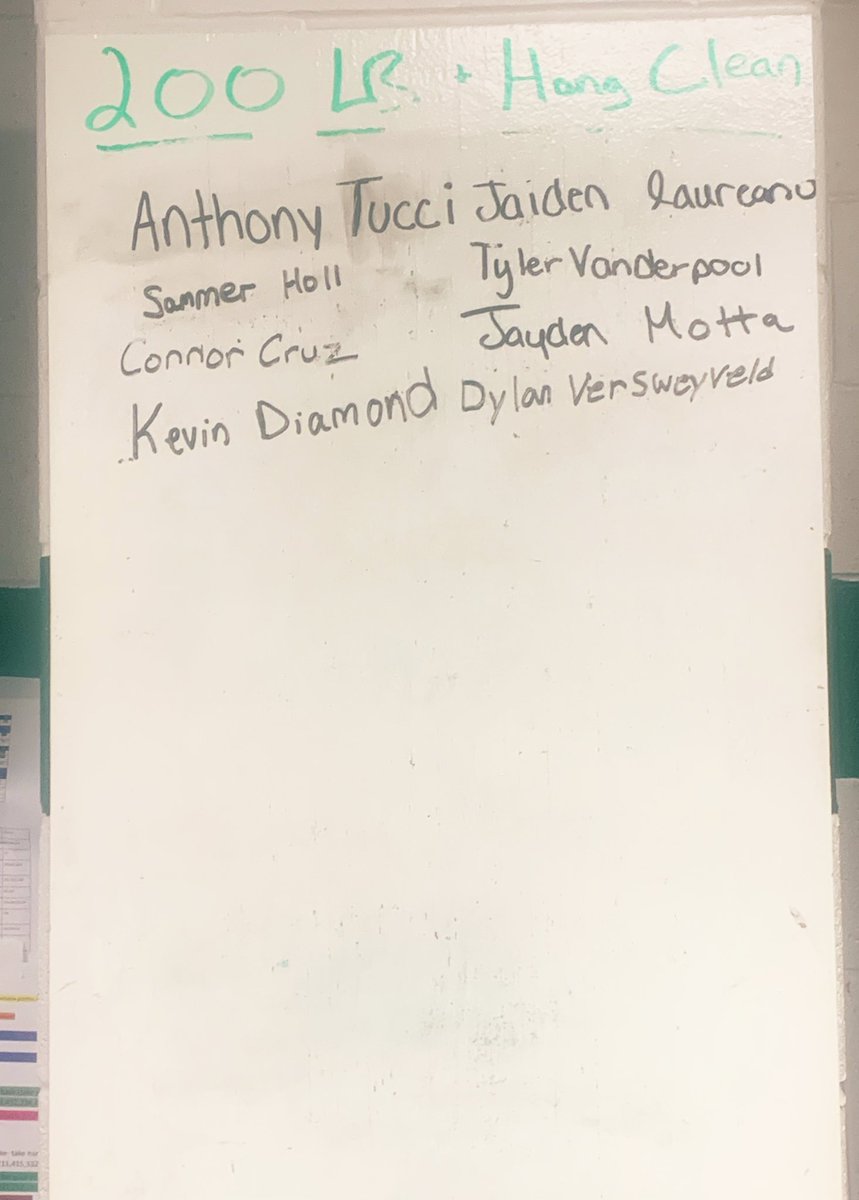 200 LB + Hang Clean
Anthony Tucci Jaiden Laureano
Sammer Holl Tyler Vanderpool
Connor Cruz Jayden Motta
Kevin Diamond Dylan Versweyveld